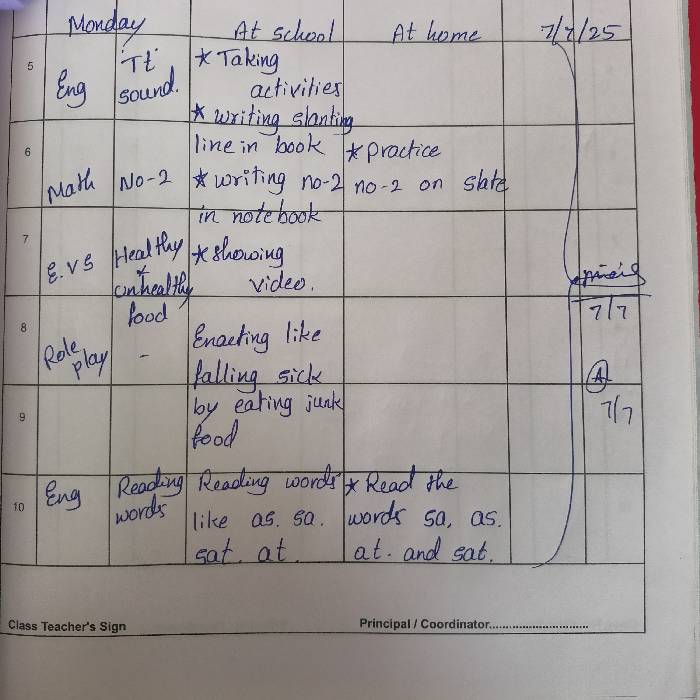 Monday At school At home 7/7/25
5 Eng Tt sound. * Taking activities
* writing slanting line in book
6 Math No-2 * writing no-2 in notebook * practice no-2 on slate
7 E.V.S Healthy & unhealthy food * showing video.
7/7
8 Role play - Enacting like falling sick by eating junk food
A
7/7
9
10 Eng Reading words Reading words like as. sa. sat. at. * Read the words sa, as. at. and sat.
Class Teacher's Sign Principal / Coordinator..............................